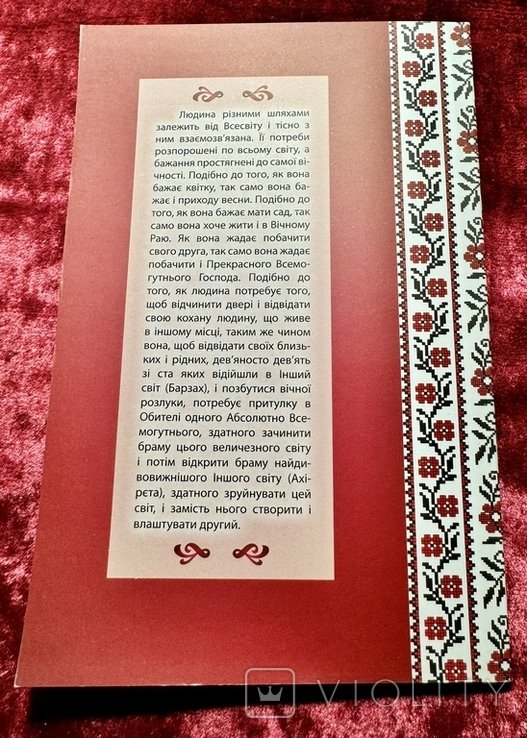 Людина різними шляхами
залежить від Всесвіту і тісно з
ним взаємозв'язана. Її потреби
розпорошені по всьому світу, а
бажання простягнені до самої ві-
чності. Подібно до того, як вона
бажає квітку, так само вона ба-
жає і приходу весни. Подібно до
того, як вона бажає мати сад, так
само вона хоче жити і в Вічному
Раю. Як вона жадає побачити
свого друга, так само вона жадає
побачити і Прекрасного Всемо-
гутнього Господа. Подібно до
того, як людина потребує того,
щоб відчинити двері і відвідати
свою кохану людину, що живе
в іншому місці, таким же чином
вона, щоб відвідати своїх близь-
ких і рідних, дев'яносто дев'ять
зі ста яких відійшли в Інший
світ (Барзах), і позбутися вічної
розлуки, потребує притулку в
Обителі одного Абсолютно Все-
могутнього, здатного зачинити
браму цього величезного світу
і потім відкрити браму найди-
вовижнішого Іншого світу (Ахі-
рєта), здатного зруйнувати цей
світ, і замість нього створити і
влаштувати другий.
VIOLITY